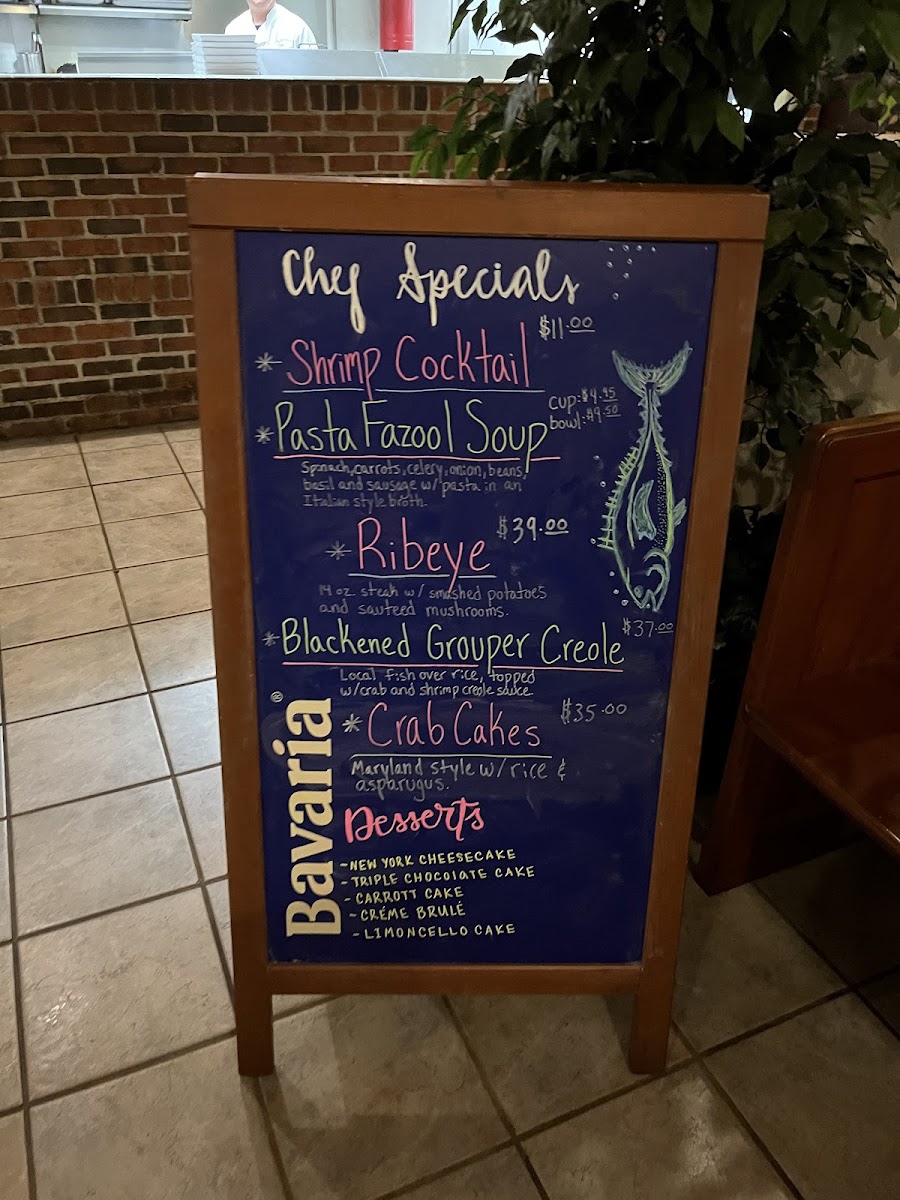 Chef Specials
* Shrimp Cocktail $11.00
* Pasta Fazool Soup cup: $4.95
bowl: $9.50
Spinach, carrots, celery, onion, beans,
basil and sausage w/ pasta in an
Italian style broth.
* Ribeye $39.00
14 oz. steak w/ smashed potatoes
and sauteed mushrooms.
* Blackened Grouper Creole $37.00
Local fish over rice, topped
w/crab and shrimp creole sauce
* Crab Cakes $35.00
Maryland style w/ rice &
asparugus.
Desserts
-NEW YORK CHEESECAKE
-TRIPLE CHOCOLATE CAKE
-CARROTT CAKE
-CRÉME BRULÉ
-LIMONCELLO CAKE
Bavaria®